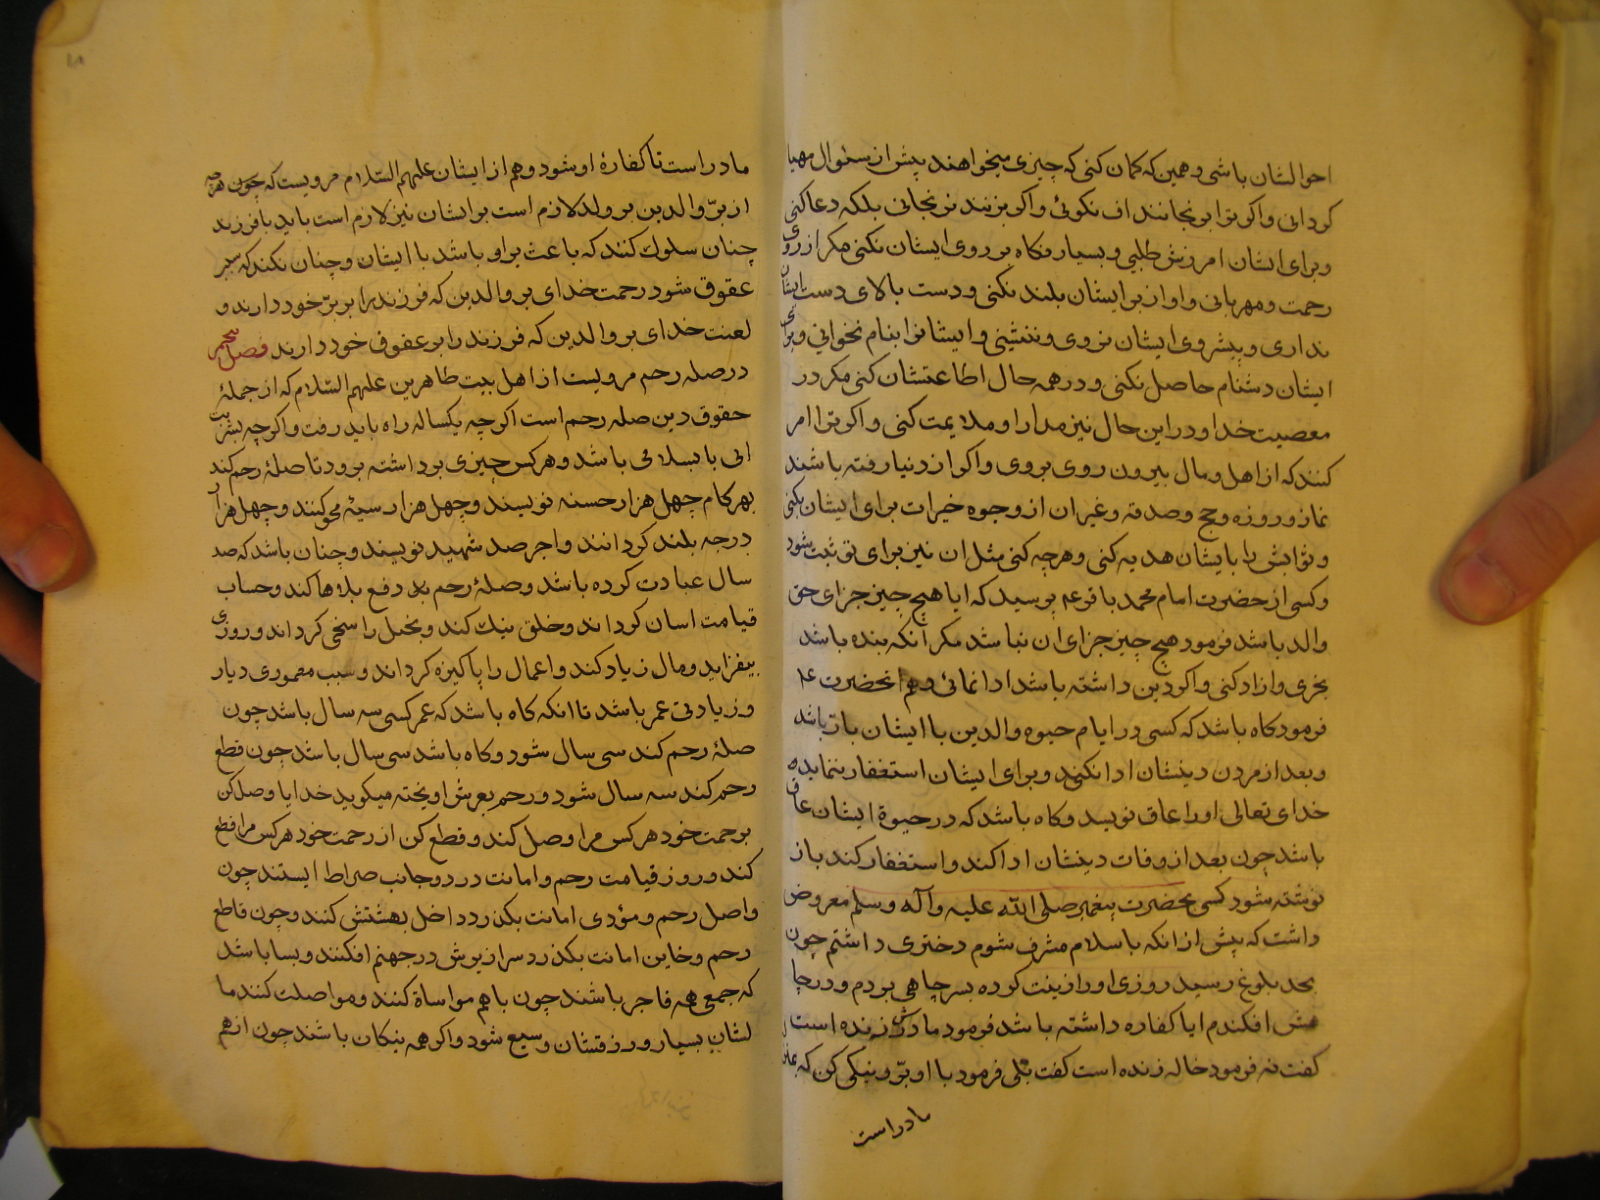 احوالشان باشی و همین که کمان کنی که چیزی میخواهند پیش از سئوال مهیا
کردانی و اکر ترا برنجانند اف نکوئی و اکر بزنند نرنجانی بلکه دعا کنی
و برای ایشان امرزش طلبی و بسیار نکاه بر روی ایشان نکنی مکر از روی
رحمت و مهربانی و اواز بر ایشان بلند نکنی و دست بالای دست ایشان
نداری و پیشروی ایشان نروی و ننشینی و ایشانرا بنام نخوانی و برای
ایشان دشنام حاصل نکنی و در همه حال اطاعتشان کنی مکر در
معصیت خدا و در این حال نیز مدارا و ملایمت کنی و اکر ترا امر
کنند که از اهل و مال بیرون روی بروی و اکر از دنیا رفته باشند
نماز و روزه و حج و صدقه و غیر ان از وجوه خیرات برای ایشان بکنی
و ثوابش را بایشان هدیه کنی و هر چه کنی مثل ان نیز برای تو ثبت شود
و کسی از حضرت امام محمد باقر ع پرسید که ایا هیچ چیز جزای حق
والد باشد فرمود هیچ چیز جزای ان نباشد مکر آنکه بنده باشد
بخری و ازاد کنی و اکر دین داشته باشد ادا نمائی و هم انحضرت ع
فرمود کاه باشد که کسی در ایام حیوه والدین با ایشان بارّ باشد
و بعد از مردن دینشان ادا نکند و برای ایشان استغفار ننماید
خدای تعالی او را عاق نویسد و کاه باشد که در حیوة ایشان عاق
باشد چون بعد از وفات دینشان ادا کند و استغفار کند بارّ
نوشته شود کسی بحضرت پیغمبر صلی الله علیه وآله وسلم معروض
داشت که پیش از انکه باسلام مشرف شوم دختری داشتم چون
بحد بلوغ رسید روزی او را زینت کرده بسر چاهی بردم و در چا
هش افکندم ایا کفاره داشته باشد فرمود مادرش زنده است
کفت نه فرمود خاله زنده است کفت بلی فرمود با او برّ و نیکی کن که
مادر است
مادر است تا کفارهٔ او شود و هم از ایشان علیهم السّلام مرویست که چون هر چه
از برّ والدین بر ولد لازم است بر ایشان نیز لازم است باید با فرزند
چنان سلوک کنند که باعث بر او باشد با ایشان و چنان نکند که سبب
عقوق شود رحمت خدای بر والدین که فرزند را بر برّ خود دارند و
لعنت خدای بر والدین که فرزند را بر عقوق خود دارند فصل پنجم
در صله رحم مرویست از اهل بیت طاهرین علیهم السّلام که از جملهٔ
حقوق دین صله رحم است اکر چه یکساله راه باید رفت و اکر چه بشربت
ابی یا بسلامی باشد و هر کس چیزی برداشته برود تا صلهٔ رحم کند
بهر کام چهل هزار حسنه نویسند و چهل هزار سیئه محو کنند و چهل هزار
درجه بلند کردانند و اجر صد شهید نویسند و چنان باشد که صد
سال عبادت کرده باشد و صلهٔ رحم بد رفع بلاها کند و حساب
قیامت اسان کرداند و خلق نیک کند و بخیل را سخی کرداند و روزی
بیفزاید و مال زیاد کند و اعمال را پاکیزه کرداند و سبب معموری دیار
و زیادتی عمر باشد تا انکه کاه باشد که عمر کسی سه سال باشد چون
صلهٔ رحم کند سی سال شود و کاه باشد سی سال باشد چون قطع
رحم کند سه سال شود و رحم بعرش اویخته میکوید خدایا وصل کن
برحمت خود هر کس مرا وصل کند و قطع کن از رحمت خود هر کس مرا قطع
کند و روز قیامت رحم و امانت در دو جانب صراط ایستند چون
واصل رحم و مؤدی امانت بکذرد داخل بهشتش کنند و چون قاطع
رحم و خاین امانت بکذرد سرازیرش در جهنم افکنند و بسا باشد
که جمعی همه فاجر باشند چون باهم مواساة کنند و مواصلت کنند ما
لشان بسیار و رزقشان وسیع شود و اکر همه نیکان باشند چون از هم